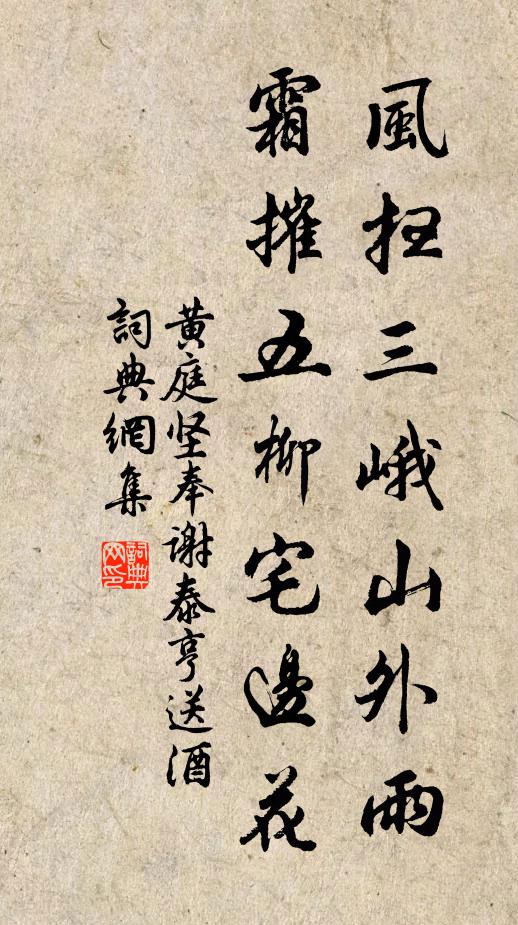 風抂三峨山外雨
霜摧五柳宅邊花
黄庭坚奉谢泰亨送酒
詞典網集
詞典
网印